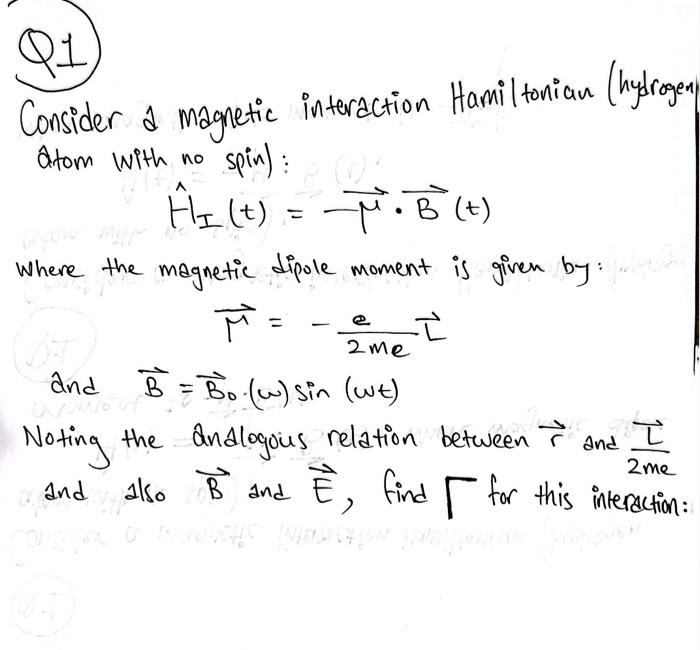 Q1
Consider a magnetic interaction Hamiltonian (hydrogen
atom with no spin):
Ĥ_I (t) = -μ⃗ · B⃗ (t)
where the magnetic dipole moment is given by:
μ⃗ = - e/2me L⃗
and B⃗ = B⃗₀ (ω) sin (ωt)
Noting the analogous relation between r⃗ and L⃗/2me
and also B⃗ and E⃗, find Γ for this interaction: